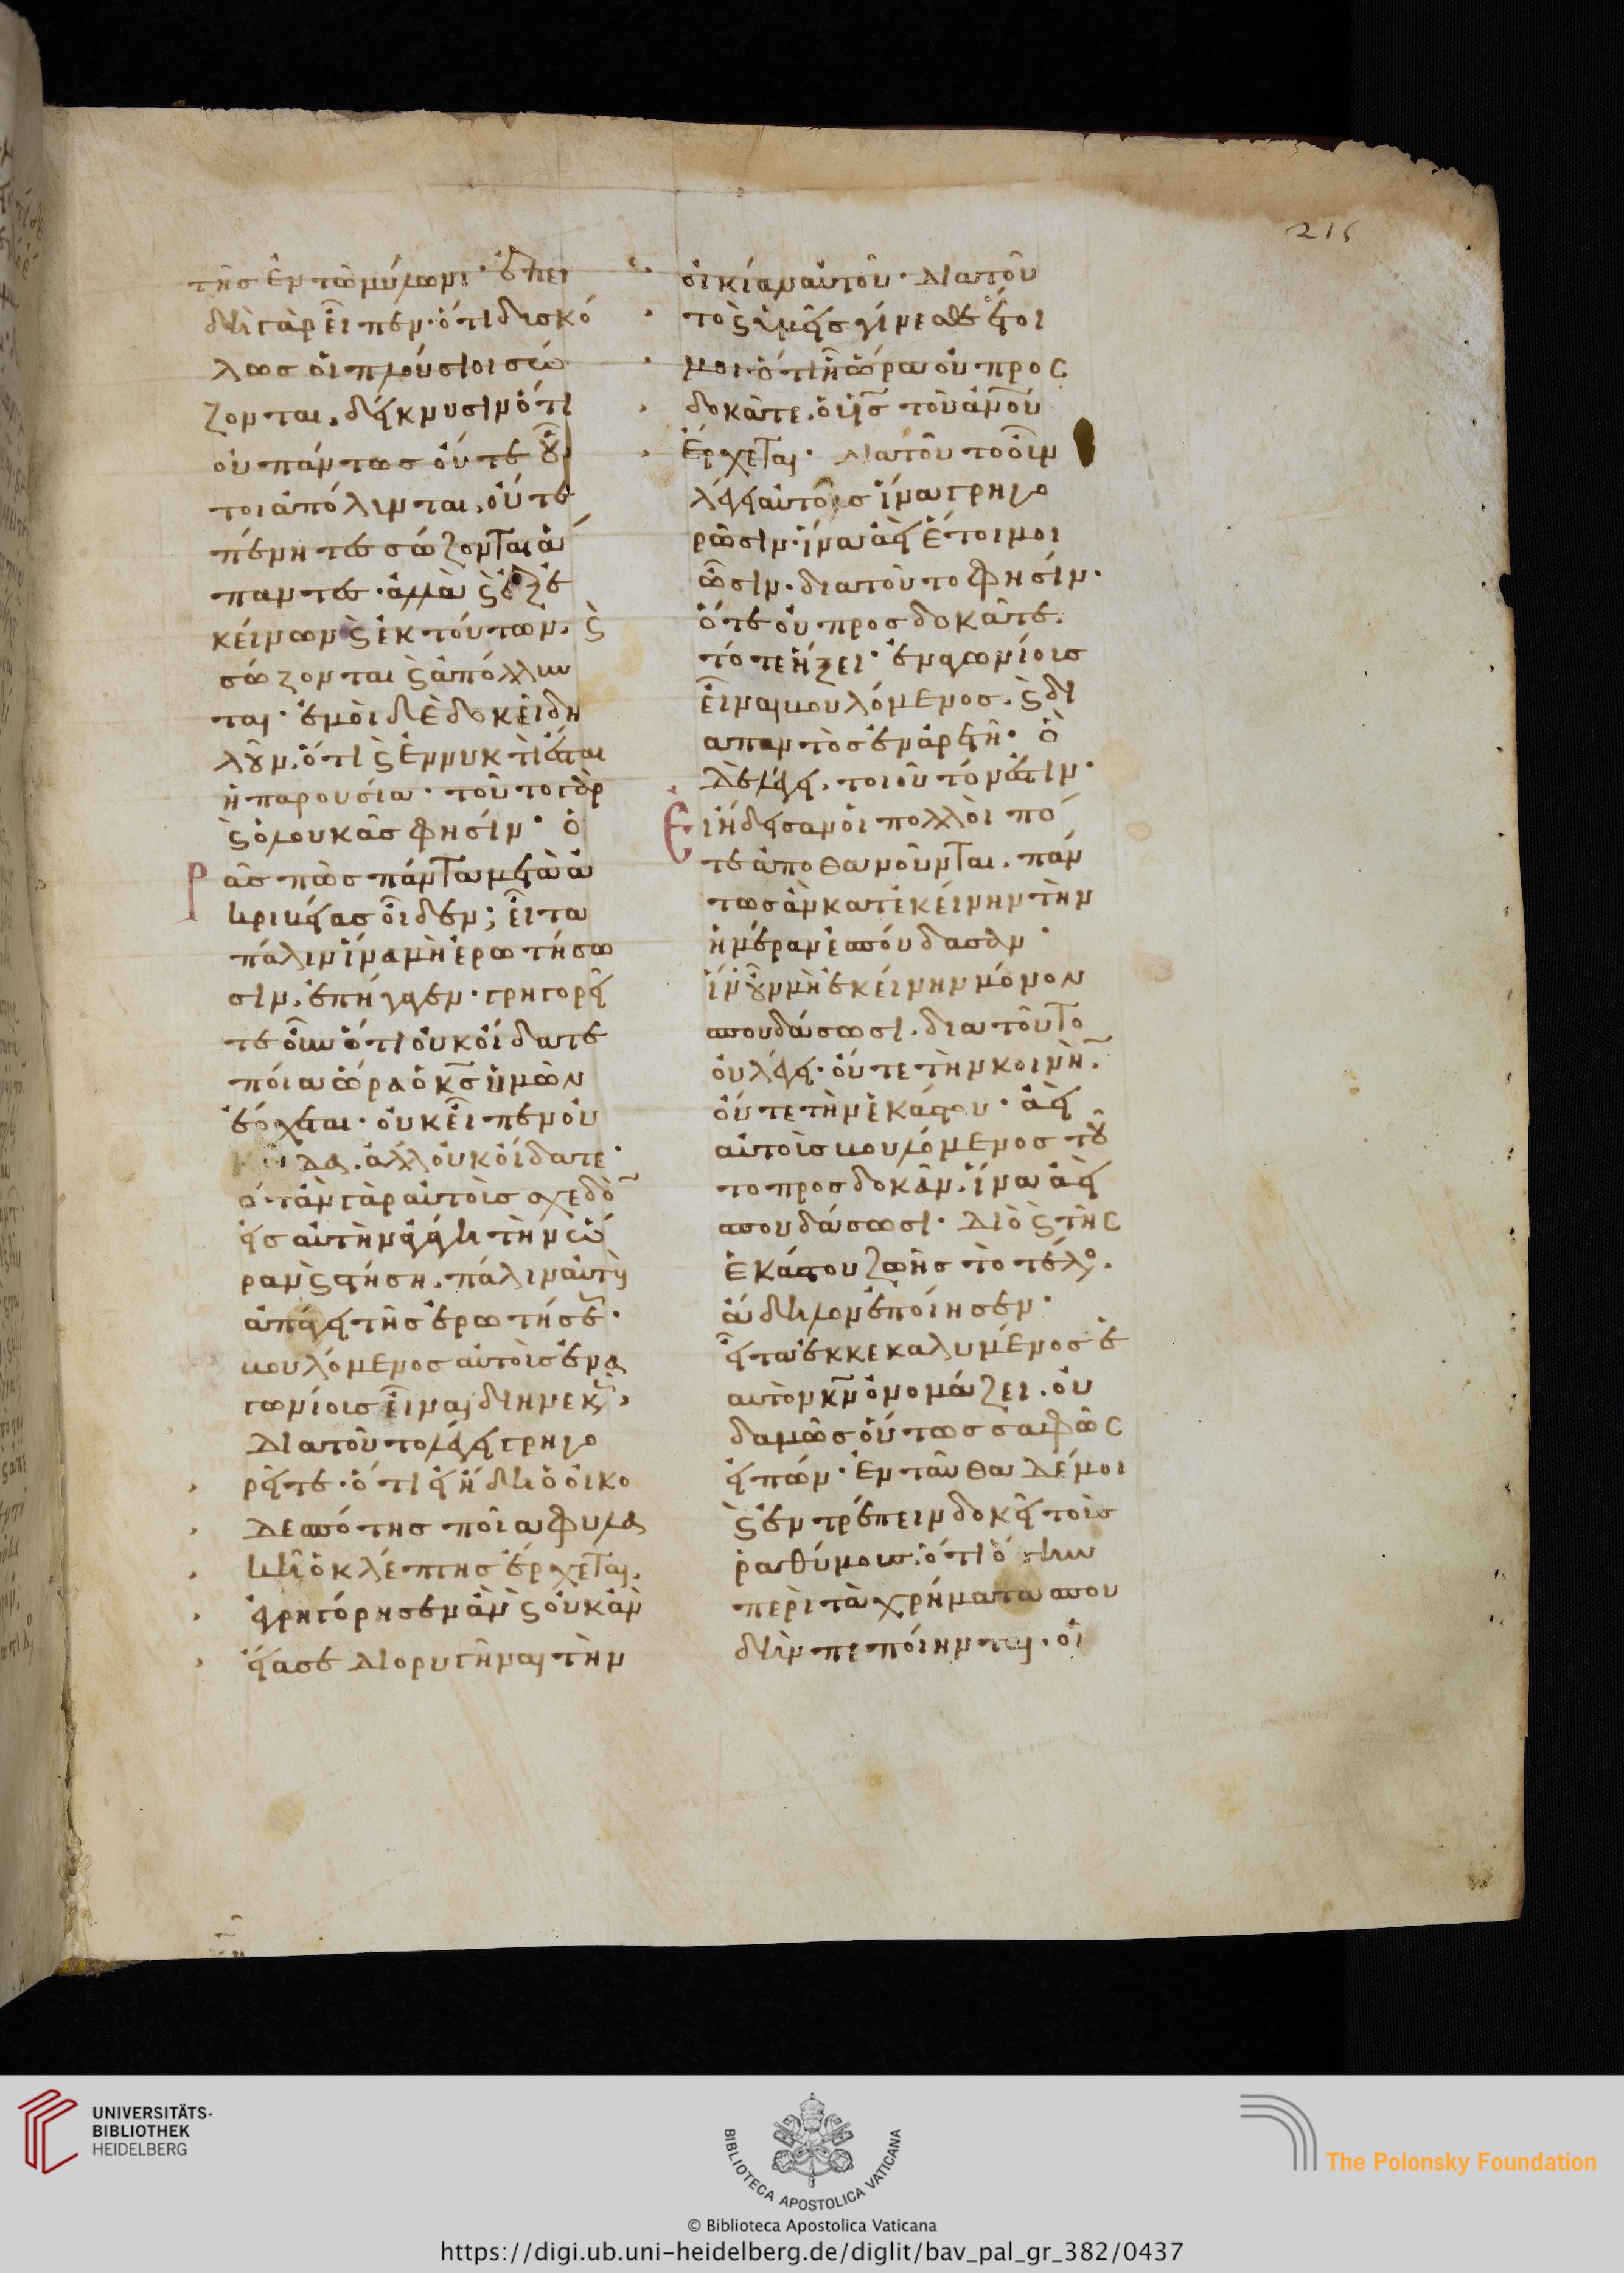 της ἐν τῶ μύλωνι· ἐπει
δὴ γὰρ εἶπεν· ὅτι δυσκό
λως οἱ πλούσιοι σώ
ζονται, δείκνυσιν ὅτι
οὐ πάντως οὔτε οὗ
τοι ἀπόλυνται, οὔτε
πένητες σώζονται ἅ
παντες· ἀλλὰ ϗ ἐξ ἐ
κείνων ϗ ἐκ τούτων, ϗ
σώζονται ϗ ἀπόλλυν
ται· ἐμοὶ δὲ δοκεῖ δη
λοῦν, ὅτι ϗ ἐν νυκτὶ ἔσται
ἡ παρουσία· τοῦτο γὰρ
ϗ ὁ λουκᾶς φησίν· ὁ
ρᾶς πῶς πάντα μετὰ ἀ
κριβείας οἶδεν; εἶτα
πάλιν ἵνα μὴ ἐρωτήσω
σιν, ἐπήγαγεν· γρηγορεῖ
τε οὖν ὅτι οὐκ οἴδατε
ποία ὥρα ὁ κς ὑμῶν
ἔρχεται· οὐκ εἶπεν οὐ
δα, ἀλλ οὐκ οἴδατε·
ὅταν γὰρ αὐτοὺς σχεδὸ
εἰς αὐτὴν ἀγάγη τὴν ὥ
ραν ϗ στήση, πάλιν αὐτοὺς
ἀπάγει τῆς ἐρωτήσεως·
βουλόμενος αὐτοὺς ἐνα
γωνίους εἶναι διηνεκῶς,
Διὰ τοῦτο λέγει γρηγο
ρεῖτε· ὅτι εἰ ἤδει ὁ οἰκο
Δεσπότης ποία φυλα
κῆ ὁ κλέπτης ἔρχεται,
ἐγρηγόρησεν ἂν ϗ οὐκ ἂν
εἴασε Διορυγῆναι τὴν
οἰκίαν αὐτοῦ· Διὰ τοῦ
το ϗ ὑμεῖς γίνεσθε ἕτοι
μοι· ὅτι ἧ ὥρα οὐ προς
δοκᾶτε, ὁ υἱς τοῦ ἀνου
ἔρχεται· Διὰ τοῦτο οἶν
λέγει αὐτοῖς ἵνα γρηγο
ρῶσιν· ἵνα ἀεὶ ἕτοιμοι
ὦσιν· διὰ τοῦτο φησίν·
ὅτε οὐ προσδοκᾶτε,
τότε ἥξει· ἐναγωνίους
εἶναι βουλόμενος, ϗ δι
απαντὸς ἐναρέτη· ὃ
Δὲ λέγει, τοιοῦτόν ἐστιν·
Εἰ ἤδεισαν οἱ πολλοὶ πό
τε ἀποθανοῦνται, πάν
τως ἂν κατ ἐκείνην τὴν
ἡμέραν ἐσπούδασαν·
ἵν οὖν μὴ ἐκείνην μόνον
σπουδάσωσι, διὰ τοῦτο
οὐ λέγει· οὔτε τὴν κοινὴ
οὔτε τὴν ἑκάστου· ἀεὶ
αὐτοὺς βουλόμενος τοῦ
το προσδοκᾶν, ἵνα ἀεὶ
σπουδάσωσι· Διὸ ϗ τῆς
ἑκάστου ζωῆς τὸ τέλος,
ἄδηλον ἐποίησεν·
εἶτα ἐκκεκαλυμένος ἑ
αυτὸν κν ὀνομάζει, οὐ
δαμῶς οὕτως σαφῶς
εἰπών· Ἐνταῦθα Δέ μοι
ϗ ἐντρέπειν δοκεῖ τοὺς
ραθύμους, ὅτι ὅσην
περὶ τὰ χρήματα σπου
δὴν πεποίηνται· οἱ
216
UNIVERSITÄTS-
BIBLIOTHEK
HEIDELBERG
BIBLIOTECA APOSTOLICA VATICANA
The Polonsky Foundation
© Biblioteca Apostolica Vaticana
https://digi.ub.uni-heidelberg.de/diglit/bav_pal_gr_382/0437